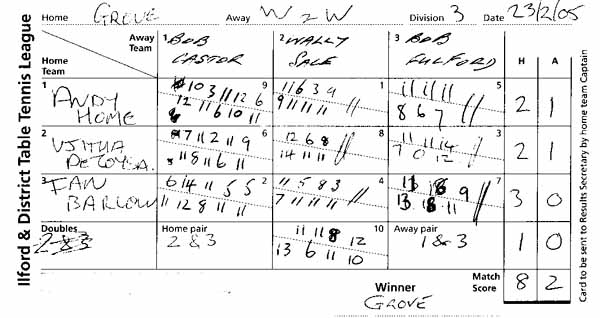 Ilford & District Table Tennis League
Home GROVE Away W 2 W Division 3 Date 23/2/05
Away Team 1 BOB CASTOR 2 WALLY SALE 3 BOB FULFORD H A
Home Team
1 ANDY HOME 9 10 3 11 12 6 1 11 6 3 9 5 11 11 11 2 1
12 11 6 10 11 9 11 11 11 8 6 7
2 6 7 11 2 11 9 8 12 6 8 3 11 11 14 2 1
11 8 11 6 11 14 11 11 7 0 12
3 IAN BARLOW 2 6 14 11 5 5 4 11 5 8 3 7 9 3 0
11 12 8 11 11 7 11 11 11 11
Doubles 2 & 3 Home pair 2 & 3 10 11 11 8 12 Away pair 1 & 3 1 0
13 6 11 10
Winner GROVE Match Score 8 2
Card to be sent to Results Secretary by Home team Captain